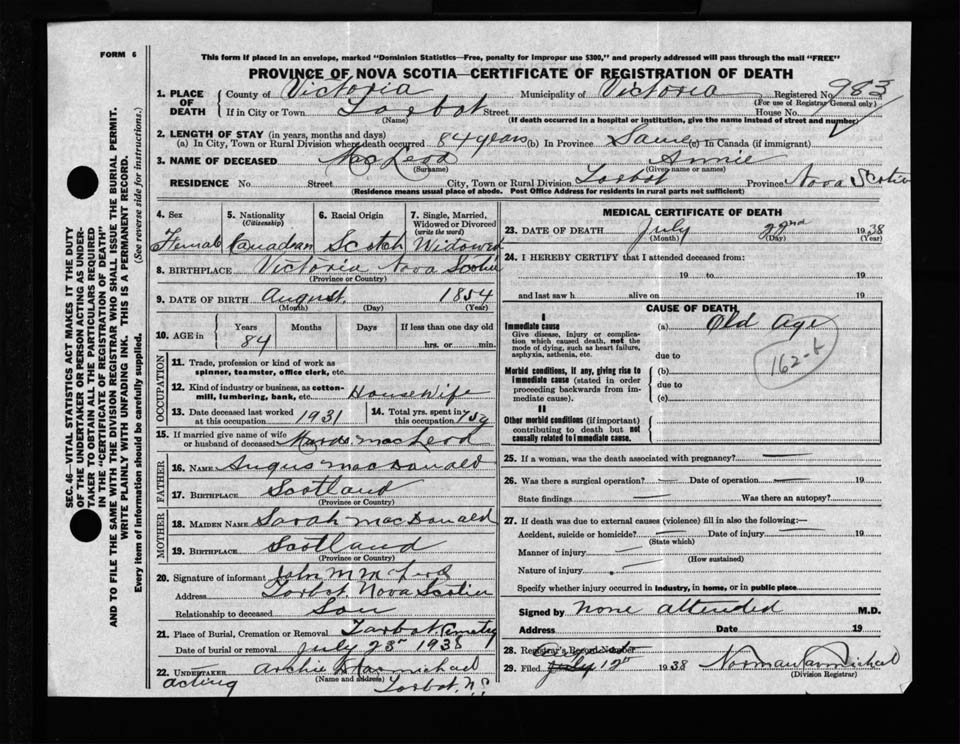 FORM 6
This form if placed in an envelope, marked "Dominion Statistics—Free, penalty for improper use $300," and properly addressed will pass through the mail "FREE"
PROVINCE OF NOVA SCOTIA—CERTIFICATE OF REGISTRATION OF DEATH
1. PLACE OF DEATH
County of Victoria Municipality of Victoria Registered No. 983
(For use of Registrar General only)
If in City or Town Tarbot Street House No.
(Name) (If death occurred in a hospital or institution, give the name instead of street and number)
2. LENGTH OF STAY (in years, months and days)
(a) In City, Town or Rural Division where death occurred 84 years (b) In Province Same (c) In Canada (if immigrant)
3. NAME OF DECEASED MacLeod Annie
(Surname) (Given name or names)
RESIDENCE No. Street City, Town or Rural Division Tarbot Province Nova Scotia
(Residence means usual place of abode. Post Office Address for residents in rural parts not sufficient)
SEC. 46—VITAL STATISTICS ACT MAKES IT THE DUTY
OF THE UNDERTAKER OR PERSON ACTING AS UNDER-
TAKER TO OBTAIN ALL THE PARTICULARS REQUIRED
IN THE "CERTIFICATE OF REGISTRATION OF DEATH"
AND TO FILE THE SAME WITH THE DIVISION REGISTRAR WHO SHALL ISSUE THE BURIAL PERMIT.
WRITE PLAINLY WITH UNFADING INK. THIS IS A PERMANENT RECORD.
Every item of Information should be carefully supplied. (See reverse side for instructions.)
4. Sex 5. Nationality (Citizenship) 6. Racial Origin 7. Single, Married, Widowed or Divorced (write the word)
Female Canadian Scotch Widowed
8. BIRTHPLACE Victoria Nova Scotia
(Province or Country)
9. DATE OF BIRTH August 1854
(Month) (Day) (Year)
10. AGE in Years Months Days If less than one day old
84 hrs. or min.
OCCUPATION
11. Trade, profession or kind of work as spinner, teamster, office clerk, etc.
12. Kind of industry or business, as cotton-mill, lumbering, bank, etc. Housewife
13. Date deceased last worked at this occupation 1931 14. Total yrs. spent in this occupation
15. If married give name of wife or husband of deceased MacLeod
FATHER
16. NAME Angus MacDonald
17. BIRTHPLACE Scotland
(Province or Country)
MOTHER
18. MAIDEN NAME Sarah MacDonald
19. BIRTHPLACE Scotland
(Province or Country)
20. Signature of informant John M McLeod
Address Tarbot Nova Scotia
Relationship to deceased Son
21. Place of Burial, Cremation or Removal Tarbot
Date of burial or removal July 25 1938
22. UNDERTAKER Archie Macmichael
(Name and address)
acting Tarbot N.S.
MEDICAL CERTIFICATE OF DEATH
23. DATE OF DEATH July 22nd 1938
(Month) (Day) (Year)
24. I HEREBY CERTIFY that I attended deceased from:
19 to 19
and last saw h alive on 19
CAUSE OF DEATH
I
Immediate cause (a) Old Age
Give disease, injury or complication which caused death, not the mode of dying, such as heart failure, asphyxia, asthenia, etc.
due to
162-b
Morbid conditions, if any, giving rise to immediate cause (stated in order proceeding backwards from immediate cause).
(b)
due to
(c)
II
Other morbid conditions (if important) contributing to death but not causally related to immediate cause.
25. If a woman, was the death associated with pregnancy? —
26. Was there a surgical operation? — Date of operation — 19
State findings — Was there an autopsy?
27. If death was due to external causes (violence) fill in also the following:—
Accident, suicide or homicide? — Date of injury — 19
(State which)
Manner of injury —
(How sustained)
Nature of injury —
Specify whether injury occurred in industry, in home, or in public place.
Signed by None attended M.D.
Address Date 19
28. Registrar's Record Number
29. Filed July 1938 Norman Carmichael
(Division Registrar)